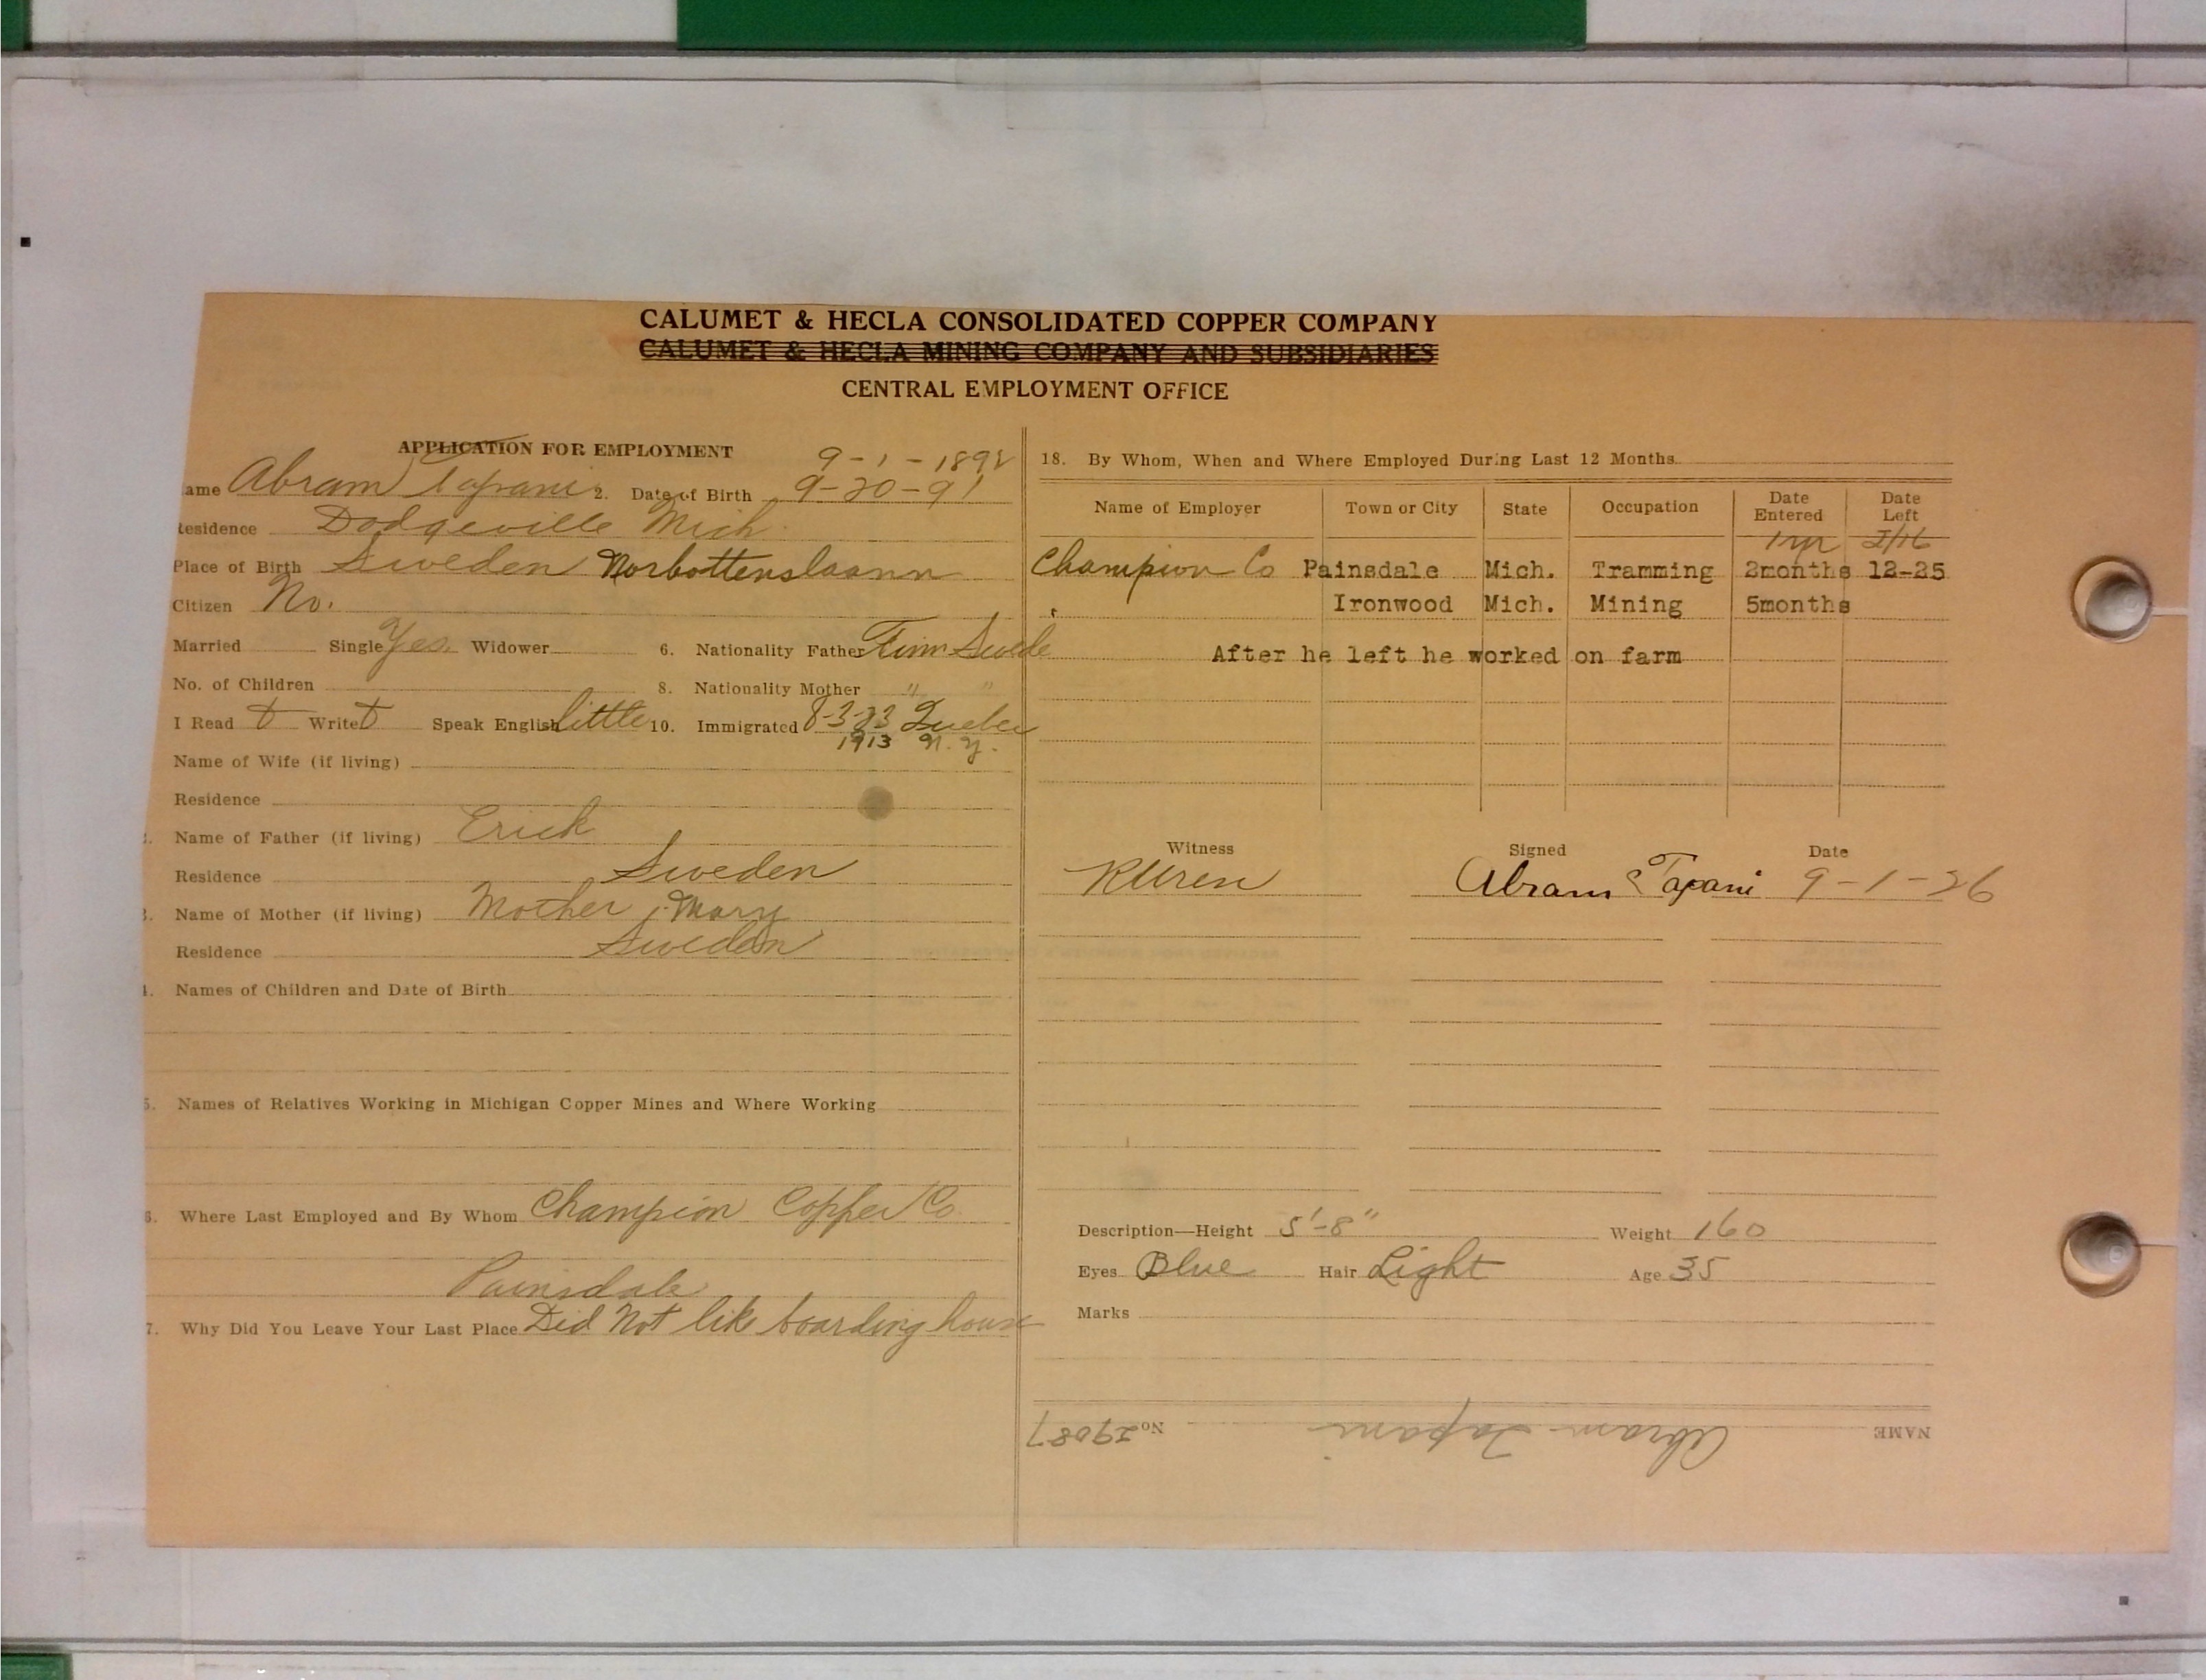 CALUMET & HECLA CONSOLIDATED COPPER COMPANY
CALUMET & HECLA MINING COMPANY AND SUBSIDIARIES
CENTRAL EMPLOYMENT OFFICE
APPLICATION FOR EMPLOYMENT
9-1-1892
ame Abram Tapani 2. Date of Birth 9-20-91
Residence Dodgeville Mich
Place of Birth Sweden Norbottenslaann
Citizen No.
Married Single Yes Widower 6. Nationality Father Finn Swede
No. of Children 8. Nationality Mother " "
I Read Write Speak English little 10. Immigrated 8-3-23 Quebec
1913 N.Y.
Name of Wife (if living)
Residence
Name of Father (if living) Erick
Residence Sweden
3. Name of Mother (if living) Mother, Mary
Residence Sweden
4. Names of Children and Date of Birth
5. Names of Relatives Working in Michigan Copper Mines and Where Working
6. Where Last Employed and By Whom Champion Copper Co
Painsdale
7. Why Did You Leave Your Last Place Did Not like boarding house
18. By Whom, When and Where Employed During Last 12 Months
Name of Employer Town or City State Occupation Date Entered Date Left
1 yr 2/16
Champion Co Painsdale Mich. Tramming 2months 12-25
Ironwood Mich. Mining 5months
After he left he worked on farm
Witness Signed Date
Abram Tapani 9-1-26
Description—Height 5'-8" Weight 160
Eyes Blue Hair Light Age 35
Marks
NAME Abram Tapani No 29087